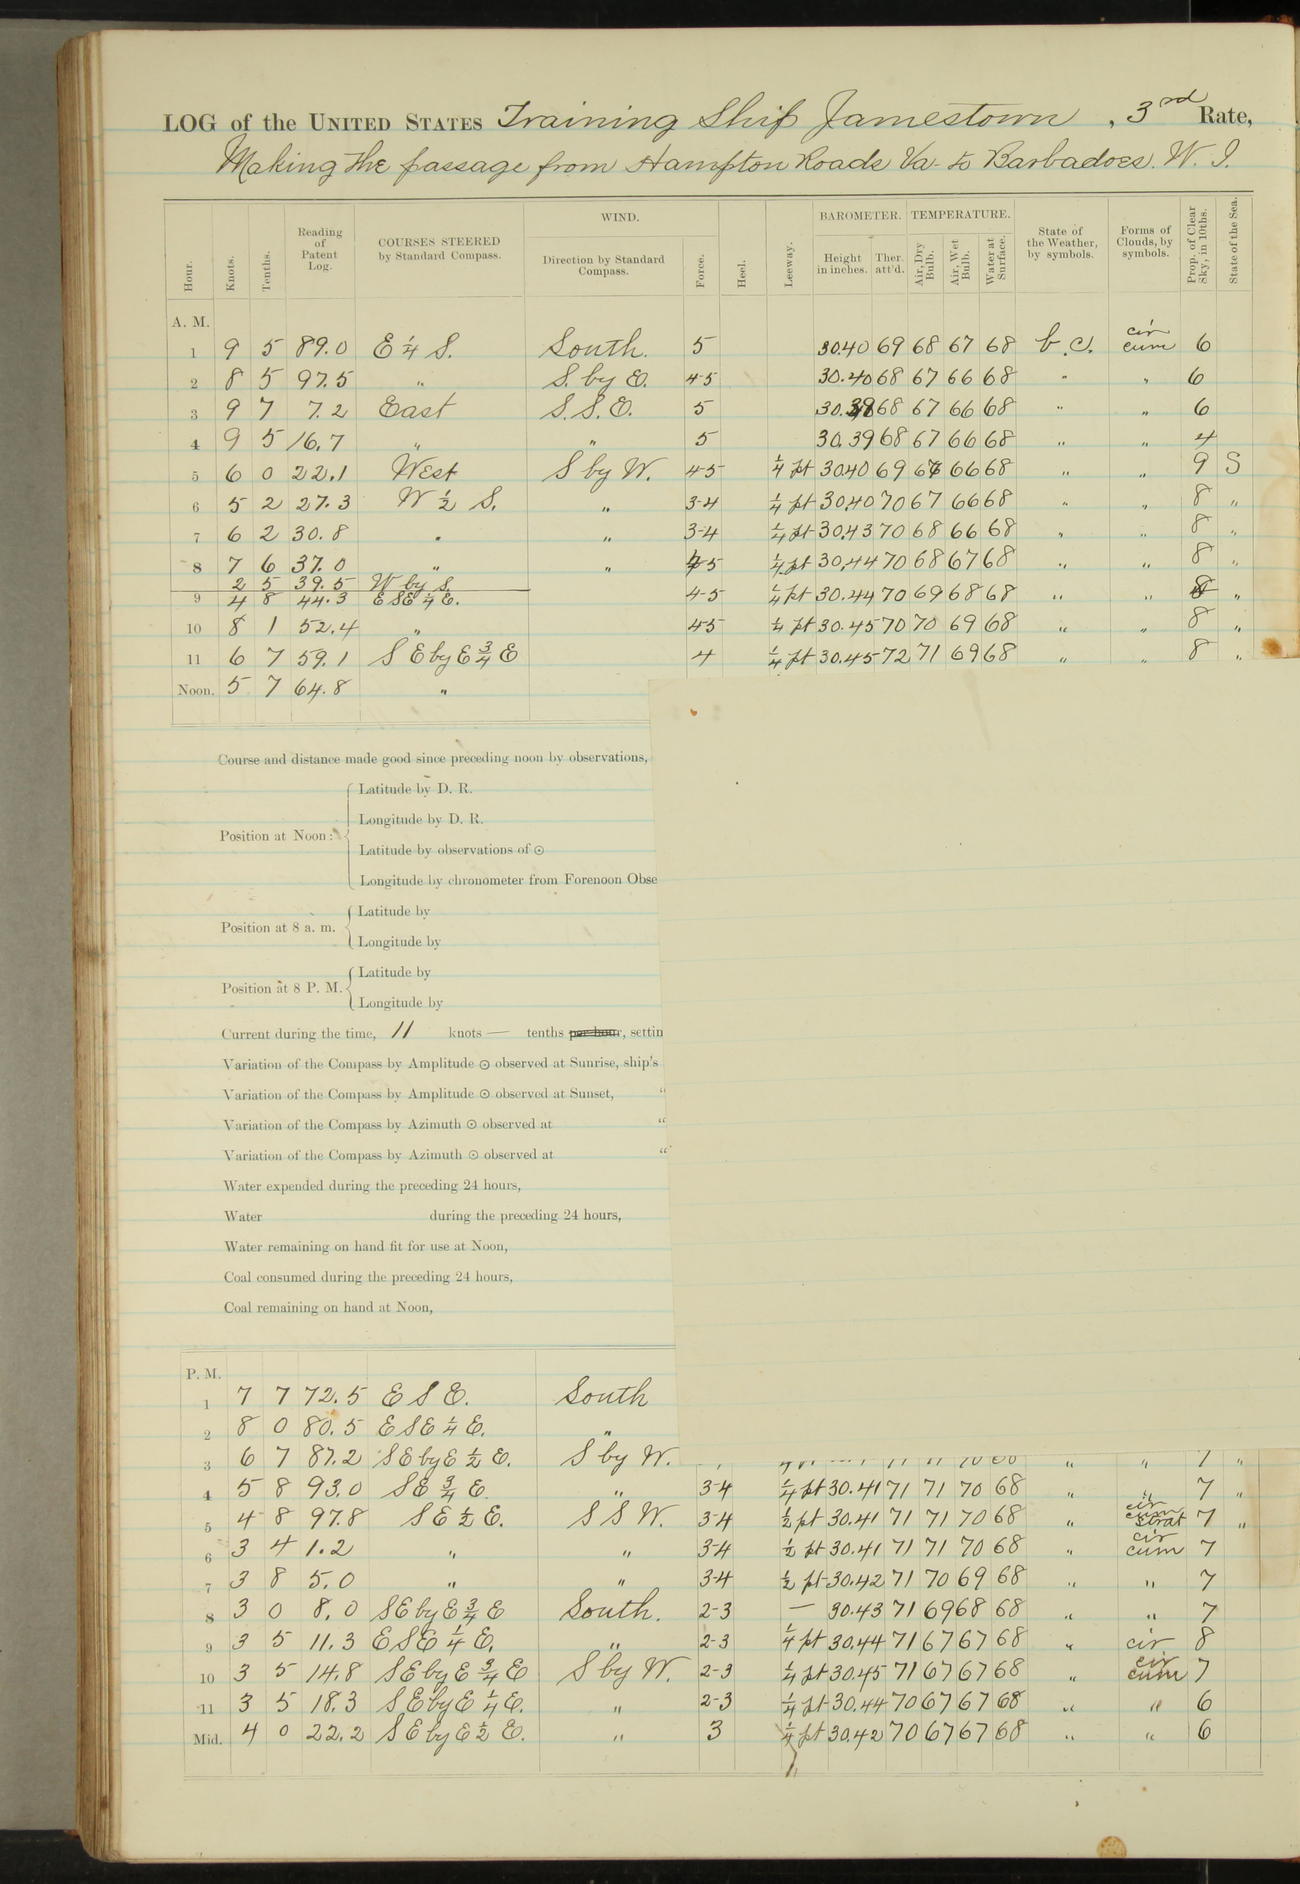 LOG of the UNITED STATES Training Ship Jamestown, 3rd Rate,
Making the passage from Hampton Roads Va. to Barbadoes. W. I.
Hour. Knots. Tenths. Reading of Patent Log. COURSES STEERED by Standard Compass. WIND. Direction by Standard Compass. Force. Heel. Leeway. BAROMETER. Height in inches. Ther. att'd. TEMPERATURE. Air, Dry Bulb. Air, Wet Bulb. Water at Surface. State of the Weather, by symbols. Forms of Clouds, by symbols. Prop. of Clear Sky, in 10ths. State of the Sea.
A. M.
1 9 5 89.0 E ¼ S. South. 5 30.40 69 68 67 68 b.c. cir cum 6
2 8 5 97.5 " S. by E. 4-5 30.40 68 67 66 68 " " 6
3 9 7 7.2 East S.S.E. 5 30.39 68 67 66 68 " " 6
4 9 5 16.7 " " 5 30.39 68 67 66 68 " " 4
5 6 0 22.1 West S by W. 4-5 ¼ pt 30.40 69 67 66 68 " " 9 S
6 5 2 27.3 W ½ S. " 3-4 ¼ pt 30.40 70 67 66 68 " " 8 "
7 6 2 30.8 " " 3-4 ¼ pt 30.43 70 68 66 68 " " 8 "
8 7 6 37.0 " " 4-5 ¼ pt 30.44 70 68 67 68 " " 8 "
2 5 39.5 W by S.
9 4 8 44.3 ESE ¼ E. 4-5 ¼ pt 30.44 70 69 68 68 " " 8 "
10 8 1 52.4 " 4-5 ¼ pt 30.45 70 70 69 68 " " 8 "
11 6 7 59.1 S E by E ¾ E 4 ¼ pt 30.45 72 71 69 68 " " 8 "
Noon. 5 7 64.8 "
Course and distance made good since preceding noon by observations,
Position at Noon:
Latitude by D. R.
Longitude by D. R.
Latitude by observations of ⊙
Longitude by chronometer from Forenoon Obse
Position at 8 a. m.
Latitude by
Longitude by
Position at 8 P. M.
Latitude by
Longitude by
Current during the time, 11 knots — tenths per hour, settin
Variation of the Compass by Amplitude ⊙ observed at Sunrise, ship's
Variation of the Compass by Amplitude ⊙ observed at Sunset, "
Variation of the Compass by Azimuth ⊙ observed at "
Variation of the Compass by Azimuth ⊙ observed at "
Water expended during the preceding 24 hours,
Water during the preceding 24 hours,
Water remaining on hand fit for use at Noon,
Coal consumed during the preceding 24 hours,
Coal remaining on hand at Noon,
P. M.
1 7 7 72.5 E S E. South
2 8 0 80.5 ESE ¼ E. "
3 6 7 87.2 SE by E ½ E. S by W. " " 7 "
4 5 8 93.0 SE ¾ E. " 3-4 ¼ pt 30.41 71 71 70 68 " " 7 "
5 4 8 97.8 SE ½ E. S S W. 3-4 ½ pt 30.41 71 71 70 68 " cir cum strat 7 "
6 3 4 1.2 " " 3-4 ½ pt 30.41 71 71 70 68 " cir cum 7
7 3 8 5.0 " " 3-4 ½ pt 30.42 71 70 69 68 " " 7
8 3 0 8.0 SE by E ¾ E South. 2-3 — 30.43 71 69 68 68 " " 7
9 3 5 11.3 ESE ¼ E. " 2-3 ¼ pt 30.44 71 67 67 68 " cir 8
10 3 5 14.8 SE by E ¾ E S by W. 2-3 ¼ pt 30.45 71 67 67 68 " cir cum 7
11 3 5 18.3 SE by E ¼ E. " 2-3 ¼ pt 30.44 70 67 67 68 " " 6
Mid. 4 0 22.2 SE by E ½ E. " 3 ¼ pt 30.42 70 67 67 68 " " 6